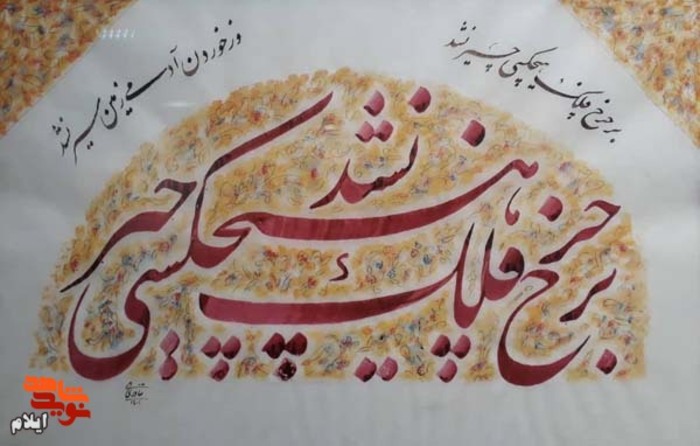 بر چرخ فلک هیچکسی چیر نشد
وز خوردن آدمی زمین سیر نشد
بر چرخ فلک هیچکسی چیر نشد
نوید شاهد
ایلام